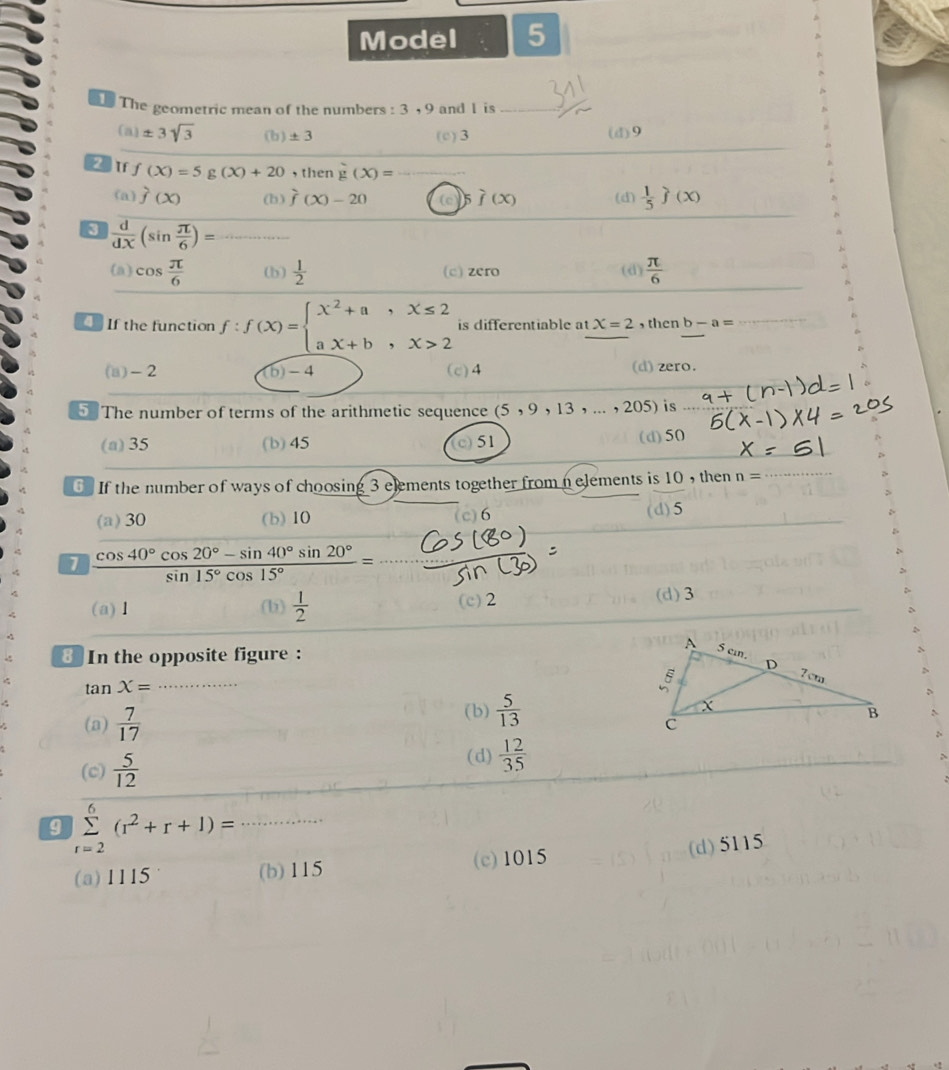 Model 5
1 The geometric mean of the numbers : 3 , 9 and 1 is
(a) ± 3√3 (b) ± 3 (c) 3 (d) 9
2 If f (X) = 5 g (X) + 20 , then g̀ (X) = ............
(a) f̀ (X) (b) f̀ (X) – 20 (c) 5 f̀ (X) (d) 1/5 f̀ (X)
3 d/dX (sin π/6) = ............
(a) cos π/6 (b) 1/2 (c) zero (d) π/6
4 If the function f : f (X) = { X² + a , X ≤ 2
a X + b , X > 2 is differentiable at X = 2 , then b – a = ............
(a) – 2 (b) – 4 (c) 4 (d) zero.
5 The number of terms of the arithmetic sequence (5 , 9 , 13 , ... , 205) is ............
a + (n-1)d = l
5(x-1)x4 = 205
(a) 35 (b) 45 (c) 51 (d) 50
x = 51
6 If the number of ways of choosing 3 elements together from n elements is 10 , then n = ............
(a) 30 (b) 10 (c) 6 (d) 5
7 cos 40° cos 20° – sin 40° sin 20° / sin 15° cos 15° = ............ cos(80) / sin(30) =
(a) 1 (b) 1/2 (c) 2 (d) 3
8 In the opposite figure :
tan X = ............
(a) 7/17 (b) 5/13
(c) 5/12 (d) 12/35
A 5 cm. D 7 cm B
5 cm C X
9 6 Σ r = 2 (r² + r + 1) = ............
(a) 1115 (b) 115 (c) 1015 (d) 5115